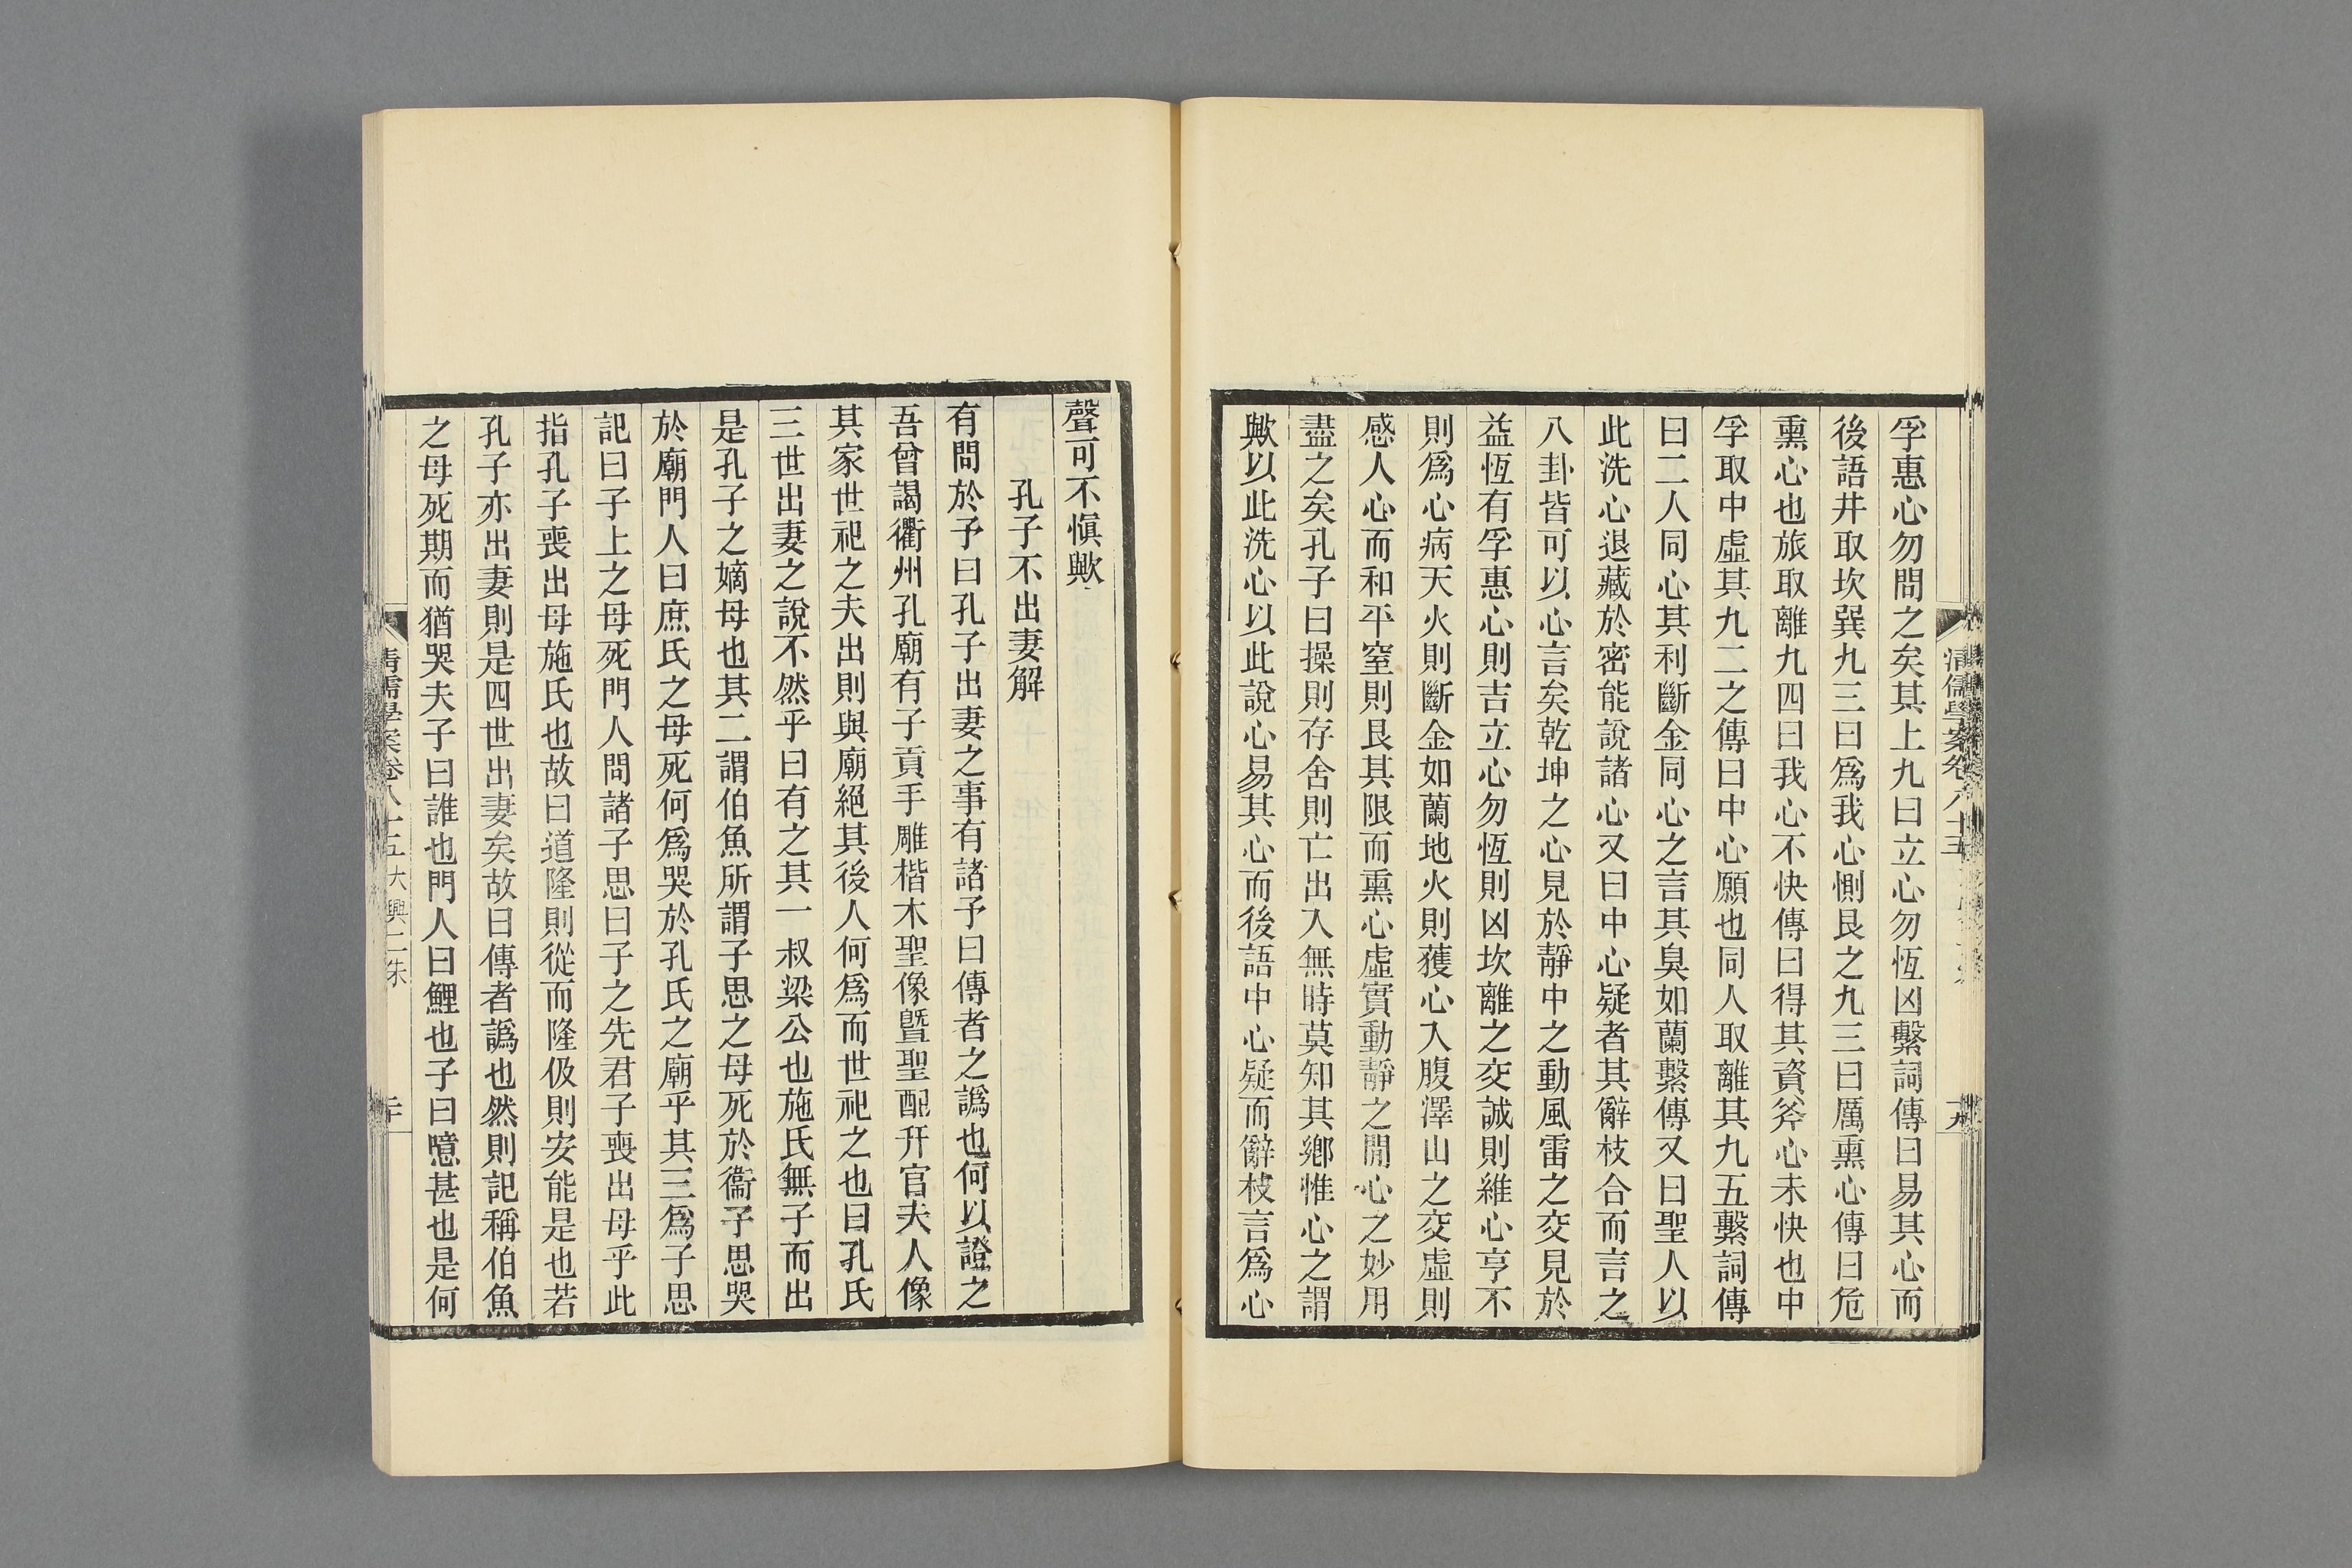 孚惠心勿問之矣其上九曰立心勿恆凶繫詞傳曰易其心而
後語井取坎巽九三曰爲我心惻艮之九三曰厲熏心傳曰危
熏心也旅取離九四曰我心不快傳曰得其資斧心未快也中
孚取中虛其九二之傳曰中心願也同人取離其九五繫詞傳
曰二人同心其利斷金同心之言其臭如蘭繫傳又曰聖人以
此洗心退藏於密能說諸心又曰中心疑者其辭枝合而言之
八卦皆可以心言矣乾坤之心見於靜中之動風雷之交見於
益恆有孚惠心則吉立心勿恆則凶坎離之交誠則維心亨不
則爲心病天火則斷金如蘭地火則獲心入腹澤山之交虛則
感人心而和平窒則艮其限而熏心虛實動靜之閒心之妙用
盡之矣孔子曰操則存舍則亡出入無時莫知其鄉惟心之謂
歟以此洗心以此說心易其心而後語中心疑而辭枝言爲心
清儒學案卷八十五
十九
聲可不慎歟
孔子不出妻解
有問於予曰孔子出妻之事有諸予曰傳者之譌也何以證之
吾曾謁衢州孔廟有子貢手雕楷木聖像暨聖配幵官夫人像
其家世祀之夫出則與廟絕其後人何爲而世祀之也曰孔氏
三世出妻之說不然乎曰有之其一叔梁公也施氏無子而出
是孔子之嫡母也其二謂伯魚所謂子思之母死於衞子思哭
於廟門人曰庶氏之母死何爲哭於孔氏之廟乎其三爲子思
記曰子上之母死門人問諸子思曰子之先君子喪出母乎此
指孔子喪出母施氏也故曰道隆則從而隆伋則安能是也若
孔子亦出妻則是四世出妻矣故曰傳者譌也然則記稱伯魚
之母死期而猶哭夫子曰誰也門人曰鯉也子曰噫甚也是何
清儒學案卷八十五 大興二朱
二十